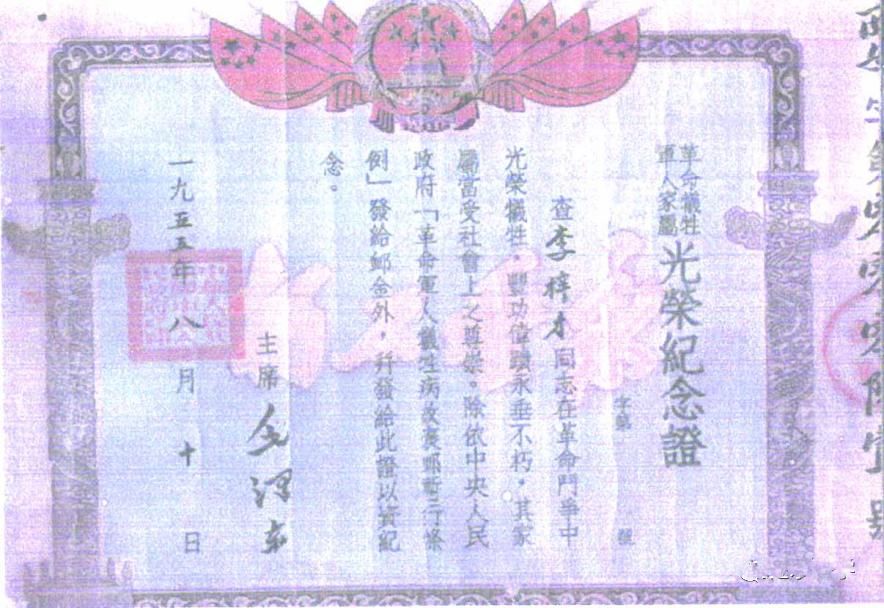 革命犧牲
軍人家屬
光榮紀念證
字第 號
查李梓才同志在革命鬥爭中
光榮犧牲，豐功偉績永垂不朽，其家
屬當受社會上之尊崇。除依中央人民
政府「革命軍人犧牲病故褒卹暫行條
例」發給卹金外，幷發給此證以資紀
念。
主席 毛澤东
一九五五年八月十日